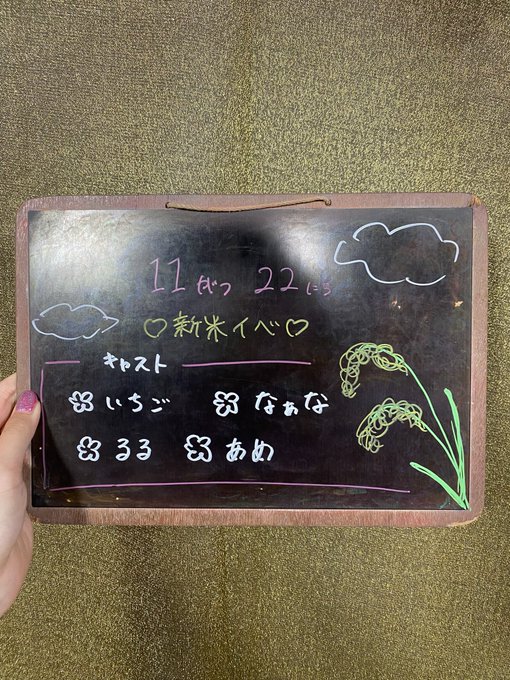 11がつ 22にち
♡新米イベ♡
キャスト
いちご なぁな
るる あめ